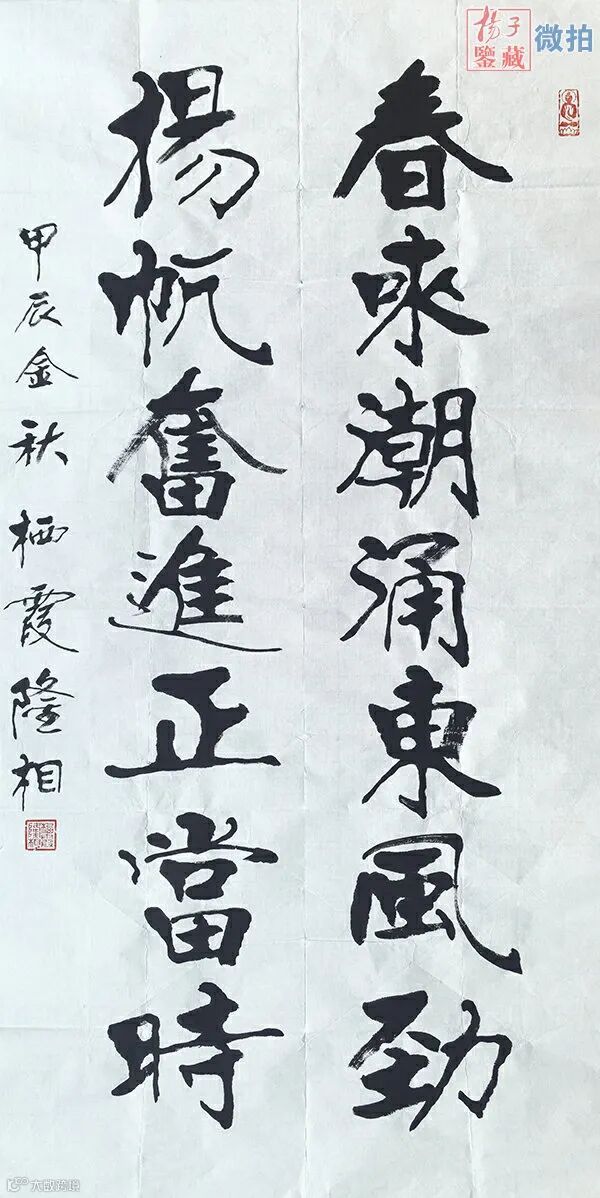 春來潮涌東風勁
揚帆奮進正當時
甲辰金秋栖霞隆相
揚子
鑒藏
微拍
大歐跨境